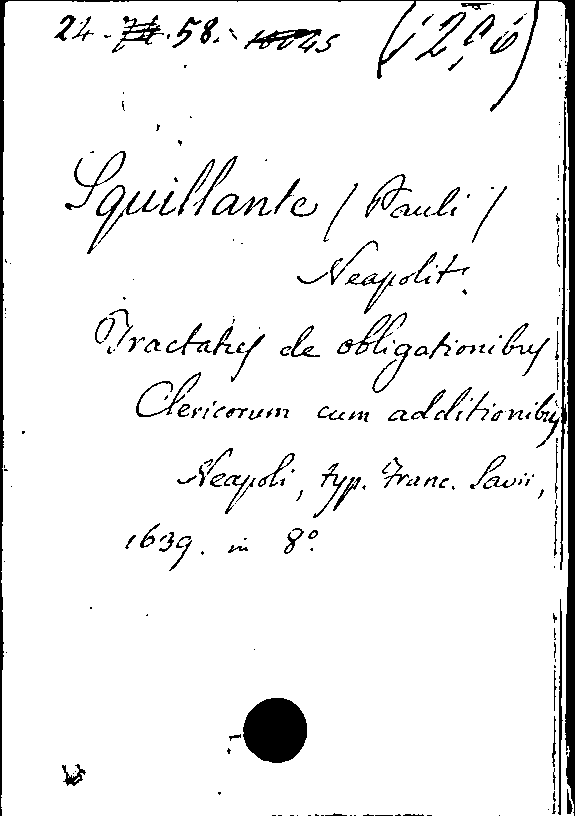 24. 58.
Squillante / Pauli /
Neapolit.
Tractatus de obligationibus
Clericorum cum additionibus
Neapoli, typ. Franc. Savii,
1639. in 8º.